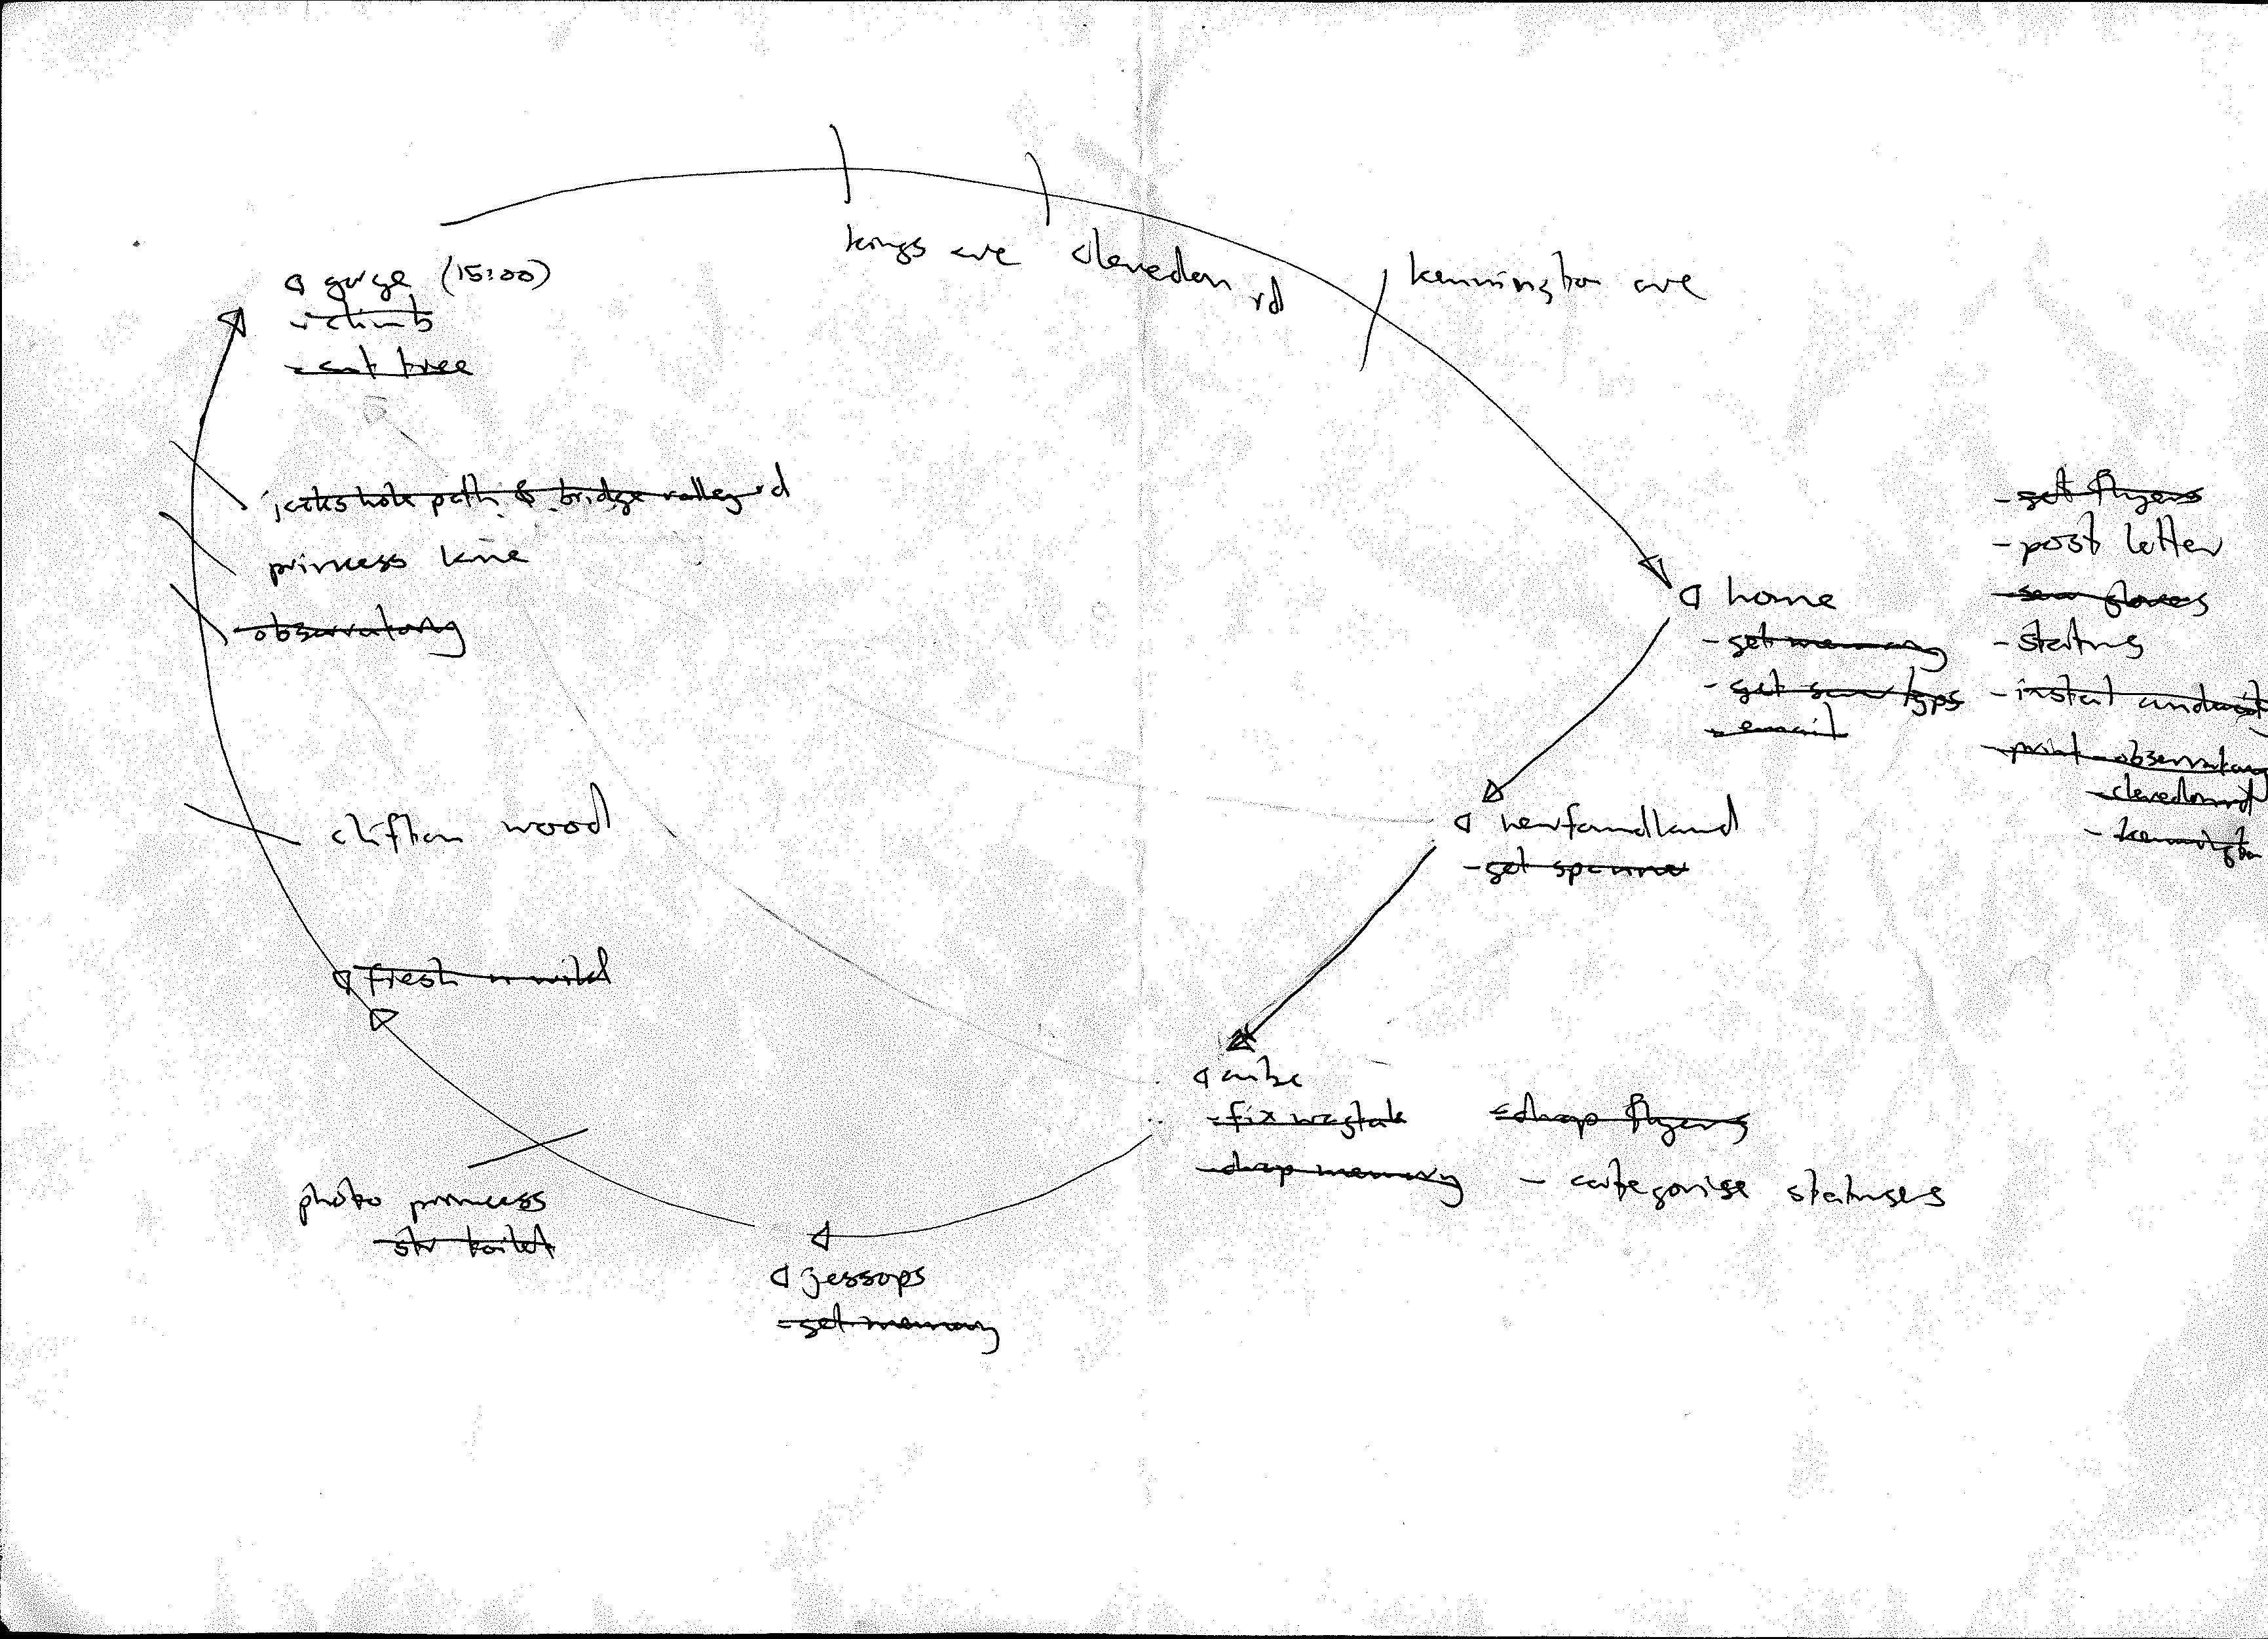 kings ave
clevedon rd
kennington ave
gorge (15:00)
- climb
- cut tree
jacks hole path & bridge valley rd
princess lane
observatory
clifton wood
fresh n wild
photo princess
str toilet
jessops
- get memory
cube
- fix wagtale
- drop memory
- drop flyers
- categorise statuses
newfoundland
- get spanner
home
- get memory
- get
- email
- get flyers
- post letter
- sew gloves
- status
- install
- print - observatory
- clevedon rd
- kennington